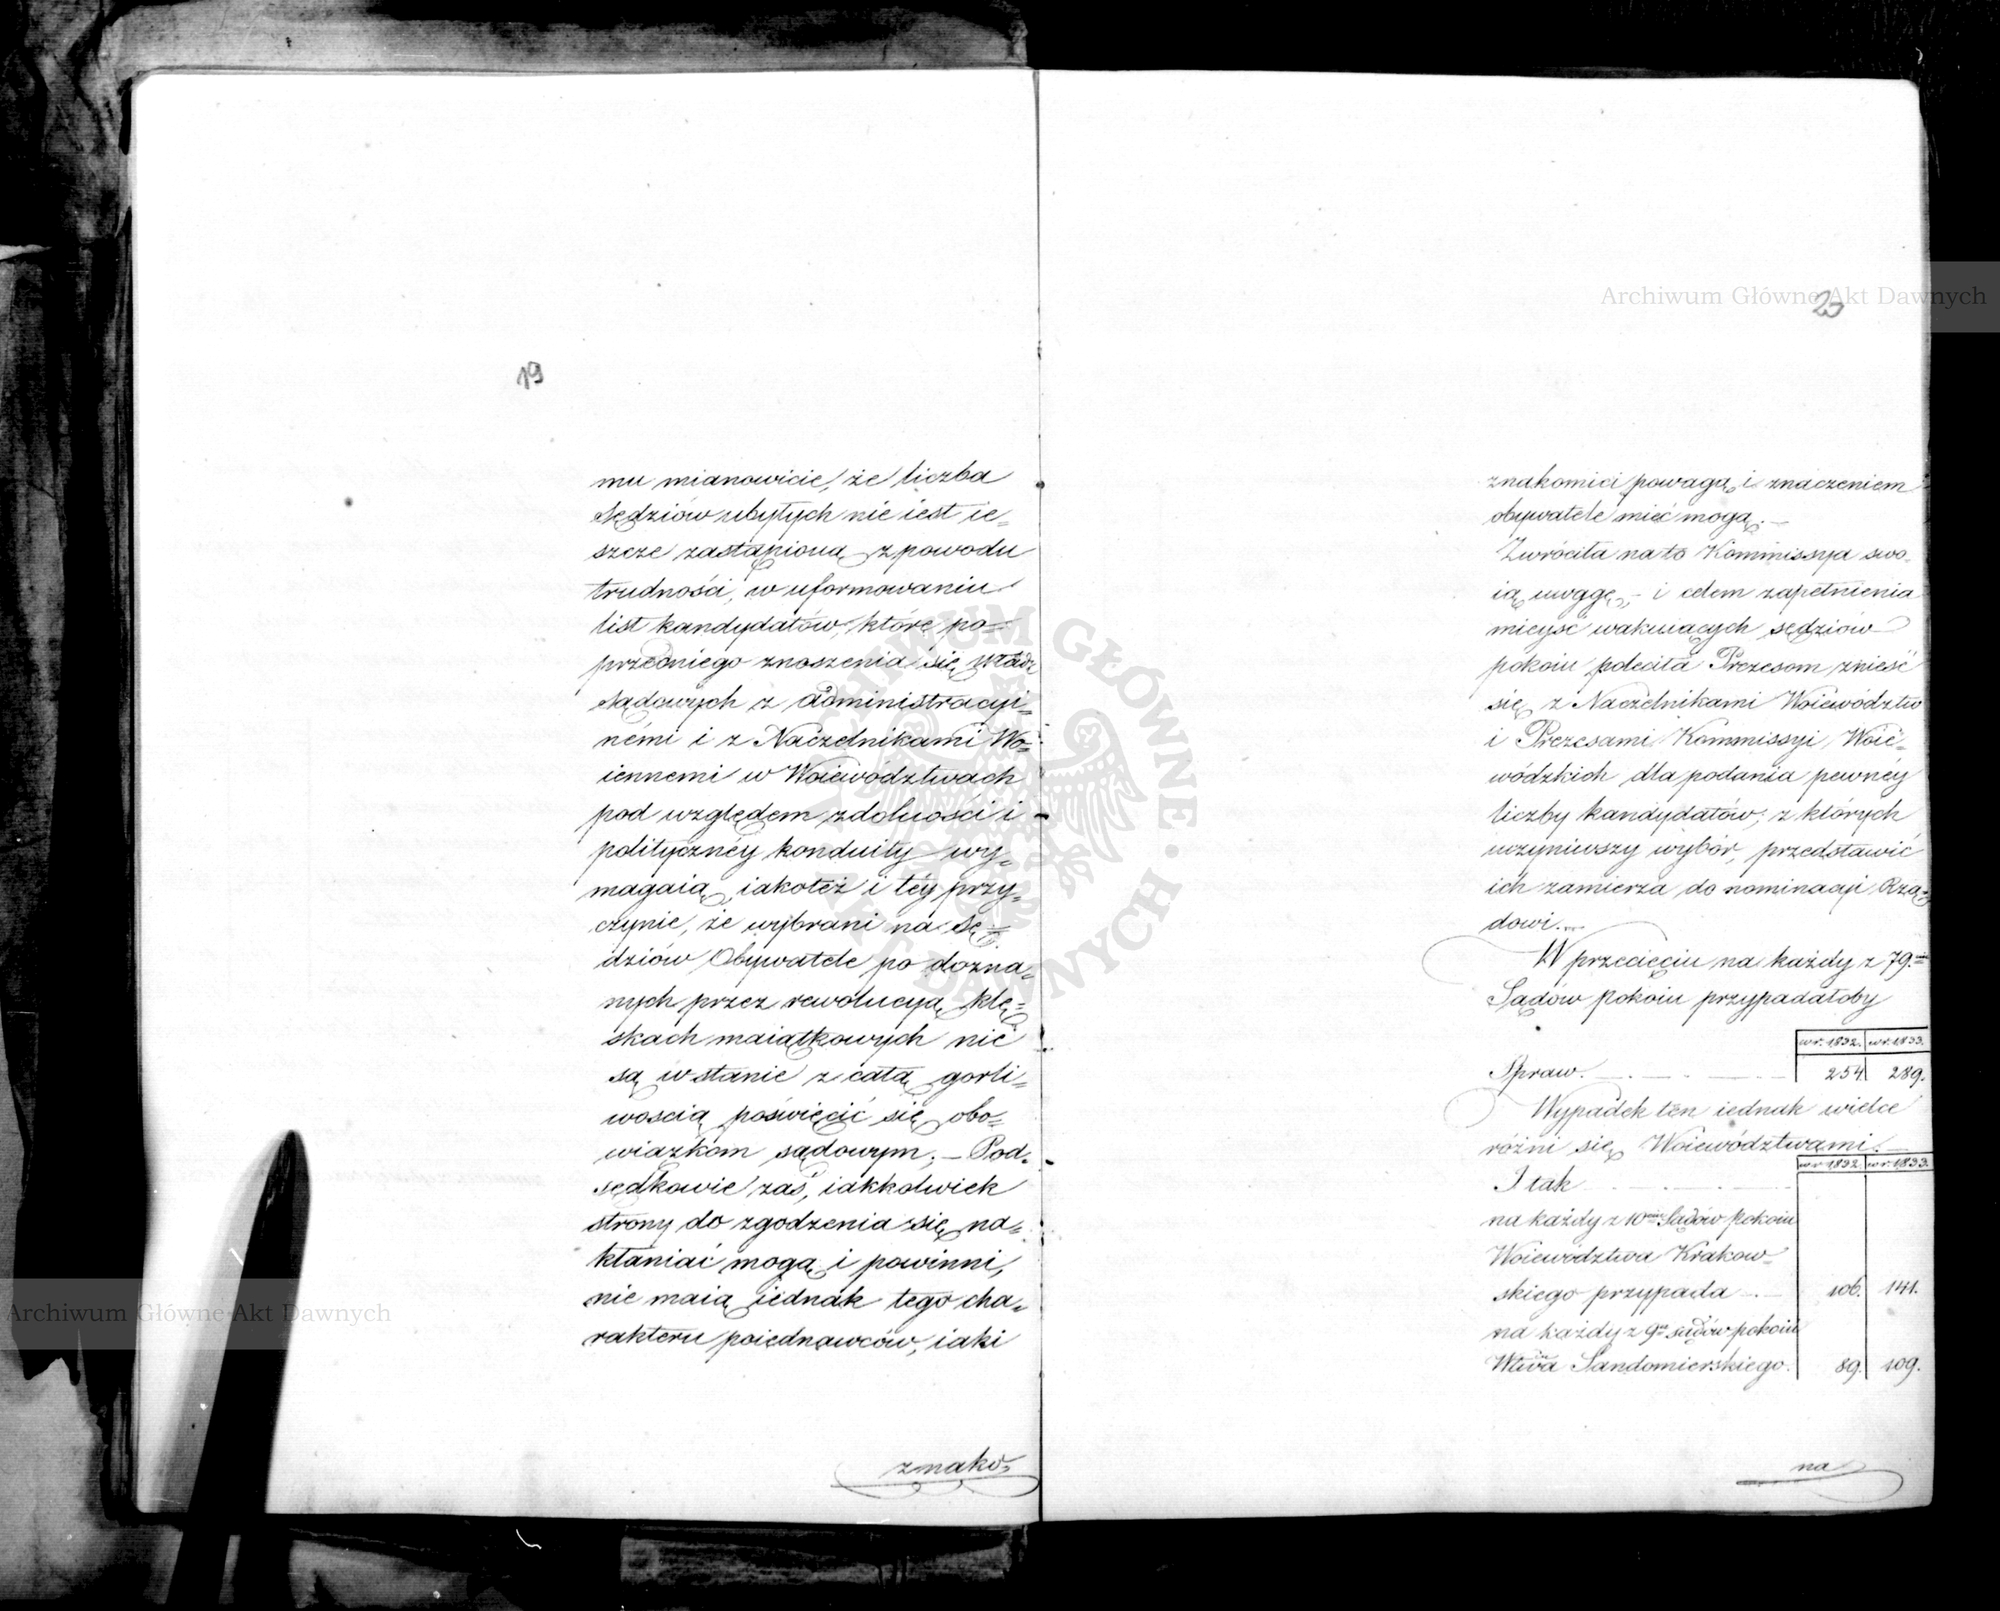 19
mu mianowicie, że liczba
Sędziów ubyłych nie iest ie„
szcze zastąpioną z powodu
trudności, w uformowaniu
list kandydatów, które po„
przedniego znoszenia się władz
Sądowych z administracyi„
némi i z Naczelnikami Wo„
iennemi w Woiewództwach
pod względem zdolności i
polityczney konduity wy„
magaią, iakoteż i téy przy„
czynie, że wybrani na Sę„
dziów Obywatele po dozna„
nych przez rewolucyą klę„
skach maiątkowych nie
są w stanie z całą gorli„
wością poświęcić się obo„
wiązkom sądowym; – Pod„
sędkowie zaś, iakkolwiek
strony do zgodzenia się na„
kłaniać mogą i powinni,
nie maią iednak tego cha„
rakteru poiednawców, iaki
znako„
20
znakomici powagą i znaczeniem
obywatele mieć mogą. –
Zwróciła na to Kommissya swo„
ią uwagę, – i celem zapełnienia
mieysć wakuiących sędziów
pokoiu poleciła Prezesom znieść
się z Naczelnikami Woiewództw
i Prezesami Kommissyi Woie„
wódzkich dla podania pewnéy
liczby kandydatów, z których
uczyniwszy wybór, przedstawić
ich zamierza do nominacyi Rzą„
dowi. ..
W przecięciu na każdy z 79.ciu
Sądów Pokoiu przypadałoby
w r. 1832. w r. 1833.
Spraw. 254 289.
Wypadek ten iednak wielce
różni się Woiewództwami. –
w r. 1832 w r. 1833.
I tak
na każdy z 10ciu Sądów Pokoiu
Woiewództwa Krakow„
skiego przypada 106. 141.
na każdy z 9u sądów pokoiu
Wtwa Sandomierskiego. 89. 109.
na
Archiwum Główne Akt Dawnych
Archiwum Główne Akt Dawnych
ARCHIWUM GŁÓWNE AKT DAWNYCH